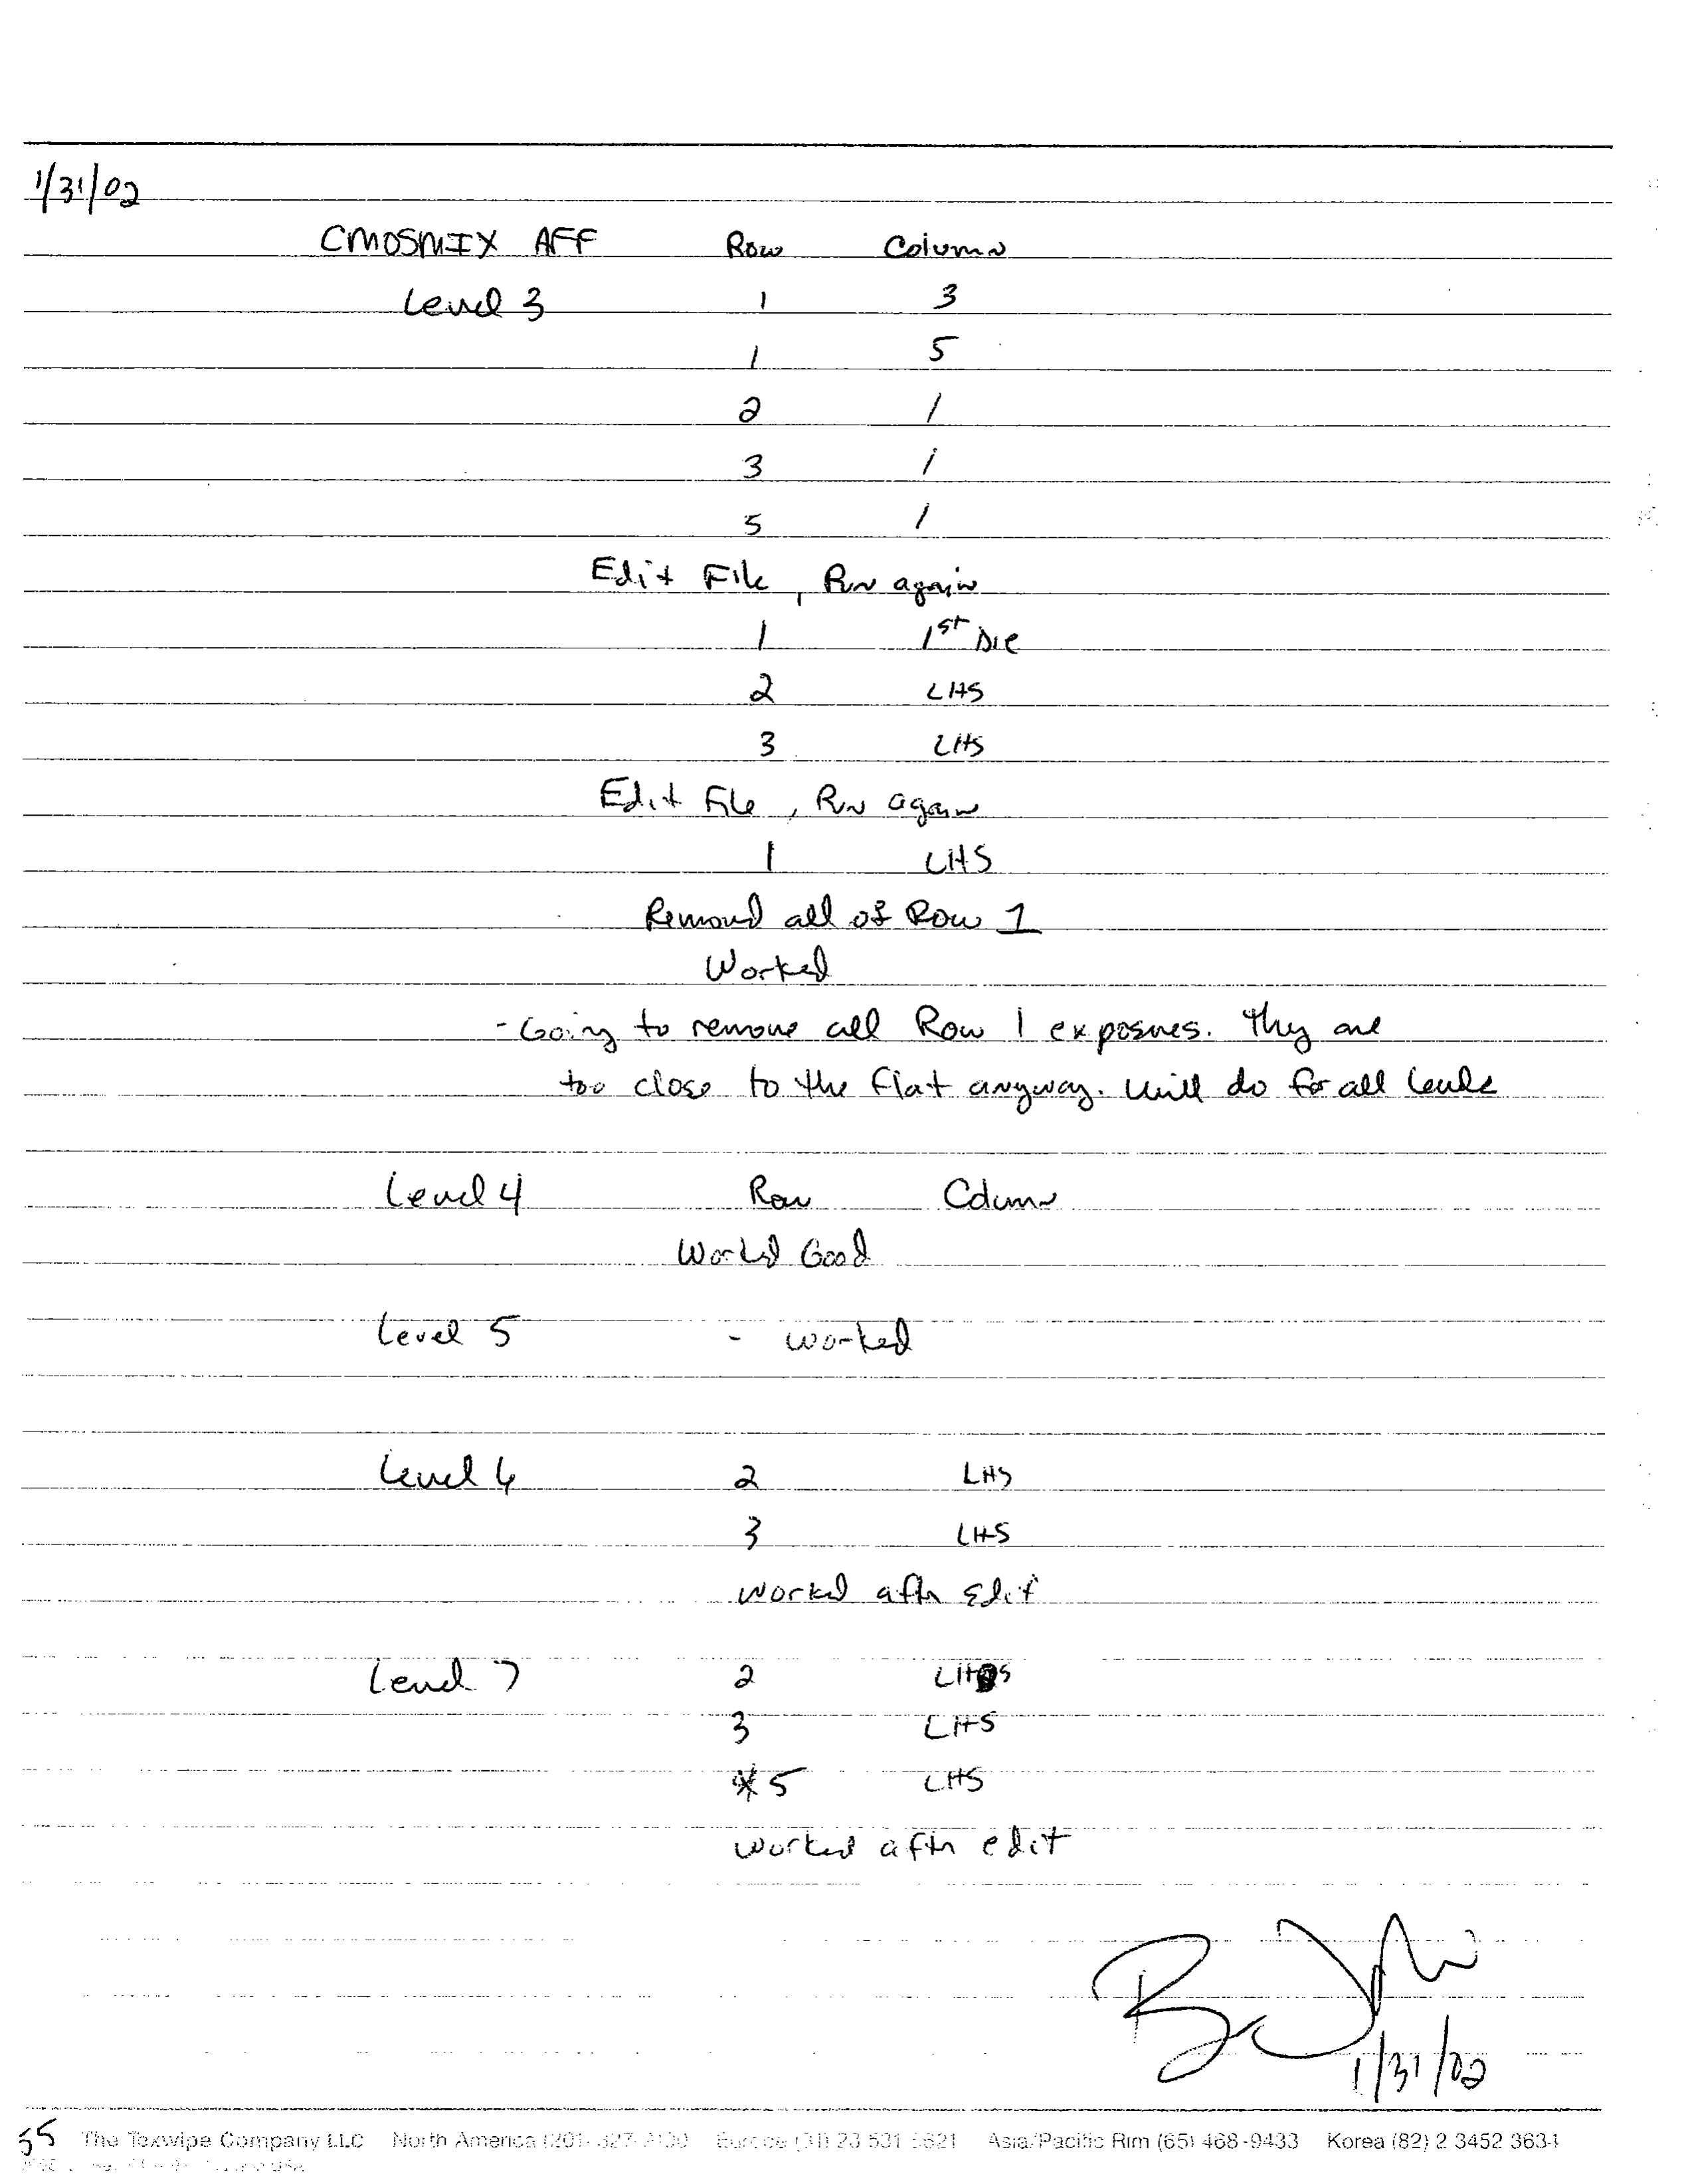 1/31/02
CMOSMIX AFF Row Column
Level 3 1 3
1 5
2 1
3 1
5 1
Edit File, Run again
1 1st Die
2 LHS
3 LHS
Edit File, Run again
1 LHS
Removed all of Row 1
Worked
- Going to remove all Row 1 exposures. They are
too close to the flat anyway. Will do for all levels
Level 4 Row Column
Worked Good
Level 5 - worked
Level 6 2 LHS
3 LHS
worked after Edit
Level 7 2 LHS
3 LHS
5 LHS
worked after edit
1/31/02
55 The Texwipe Company LLC North America Europe Asia/Pacific Rim (65) 468-9433 Korea (82) 2 3452 3634